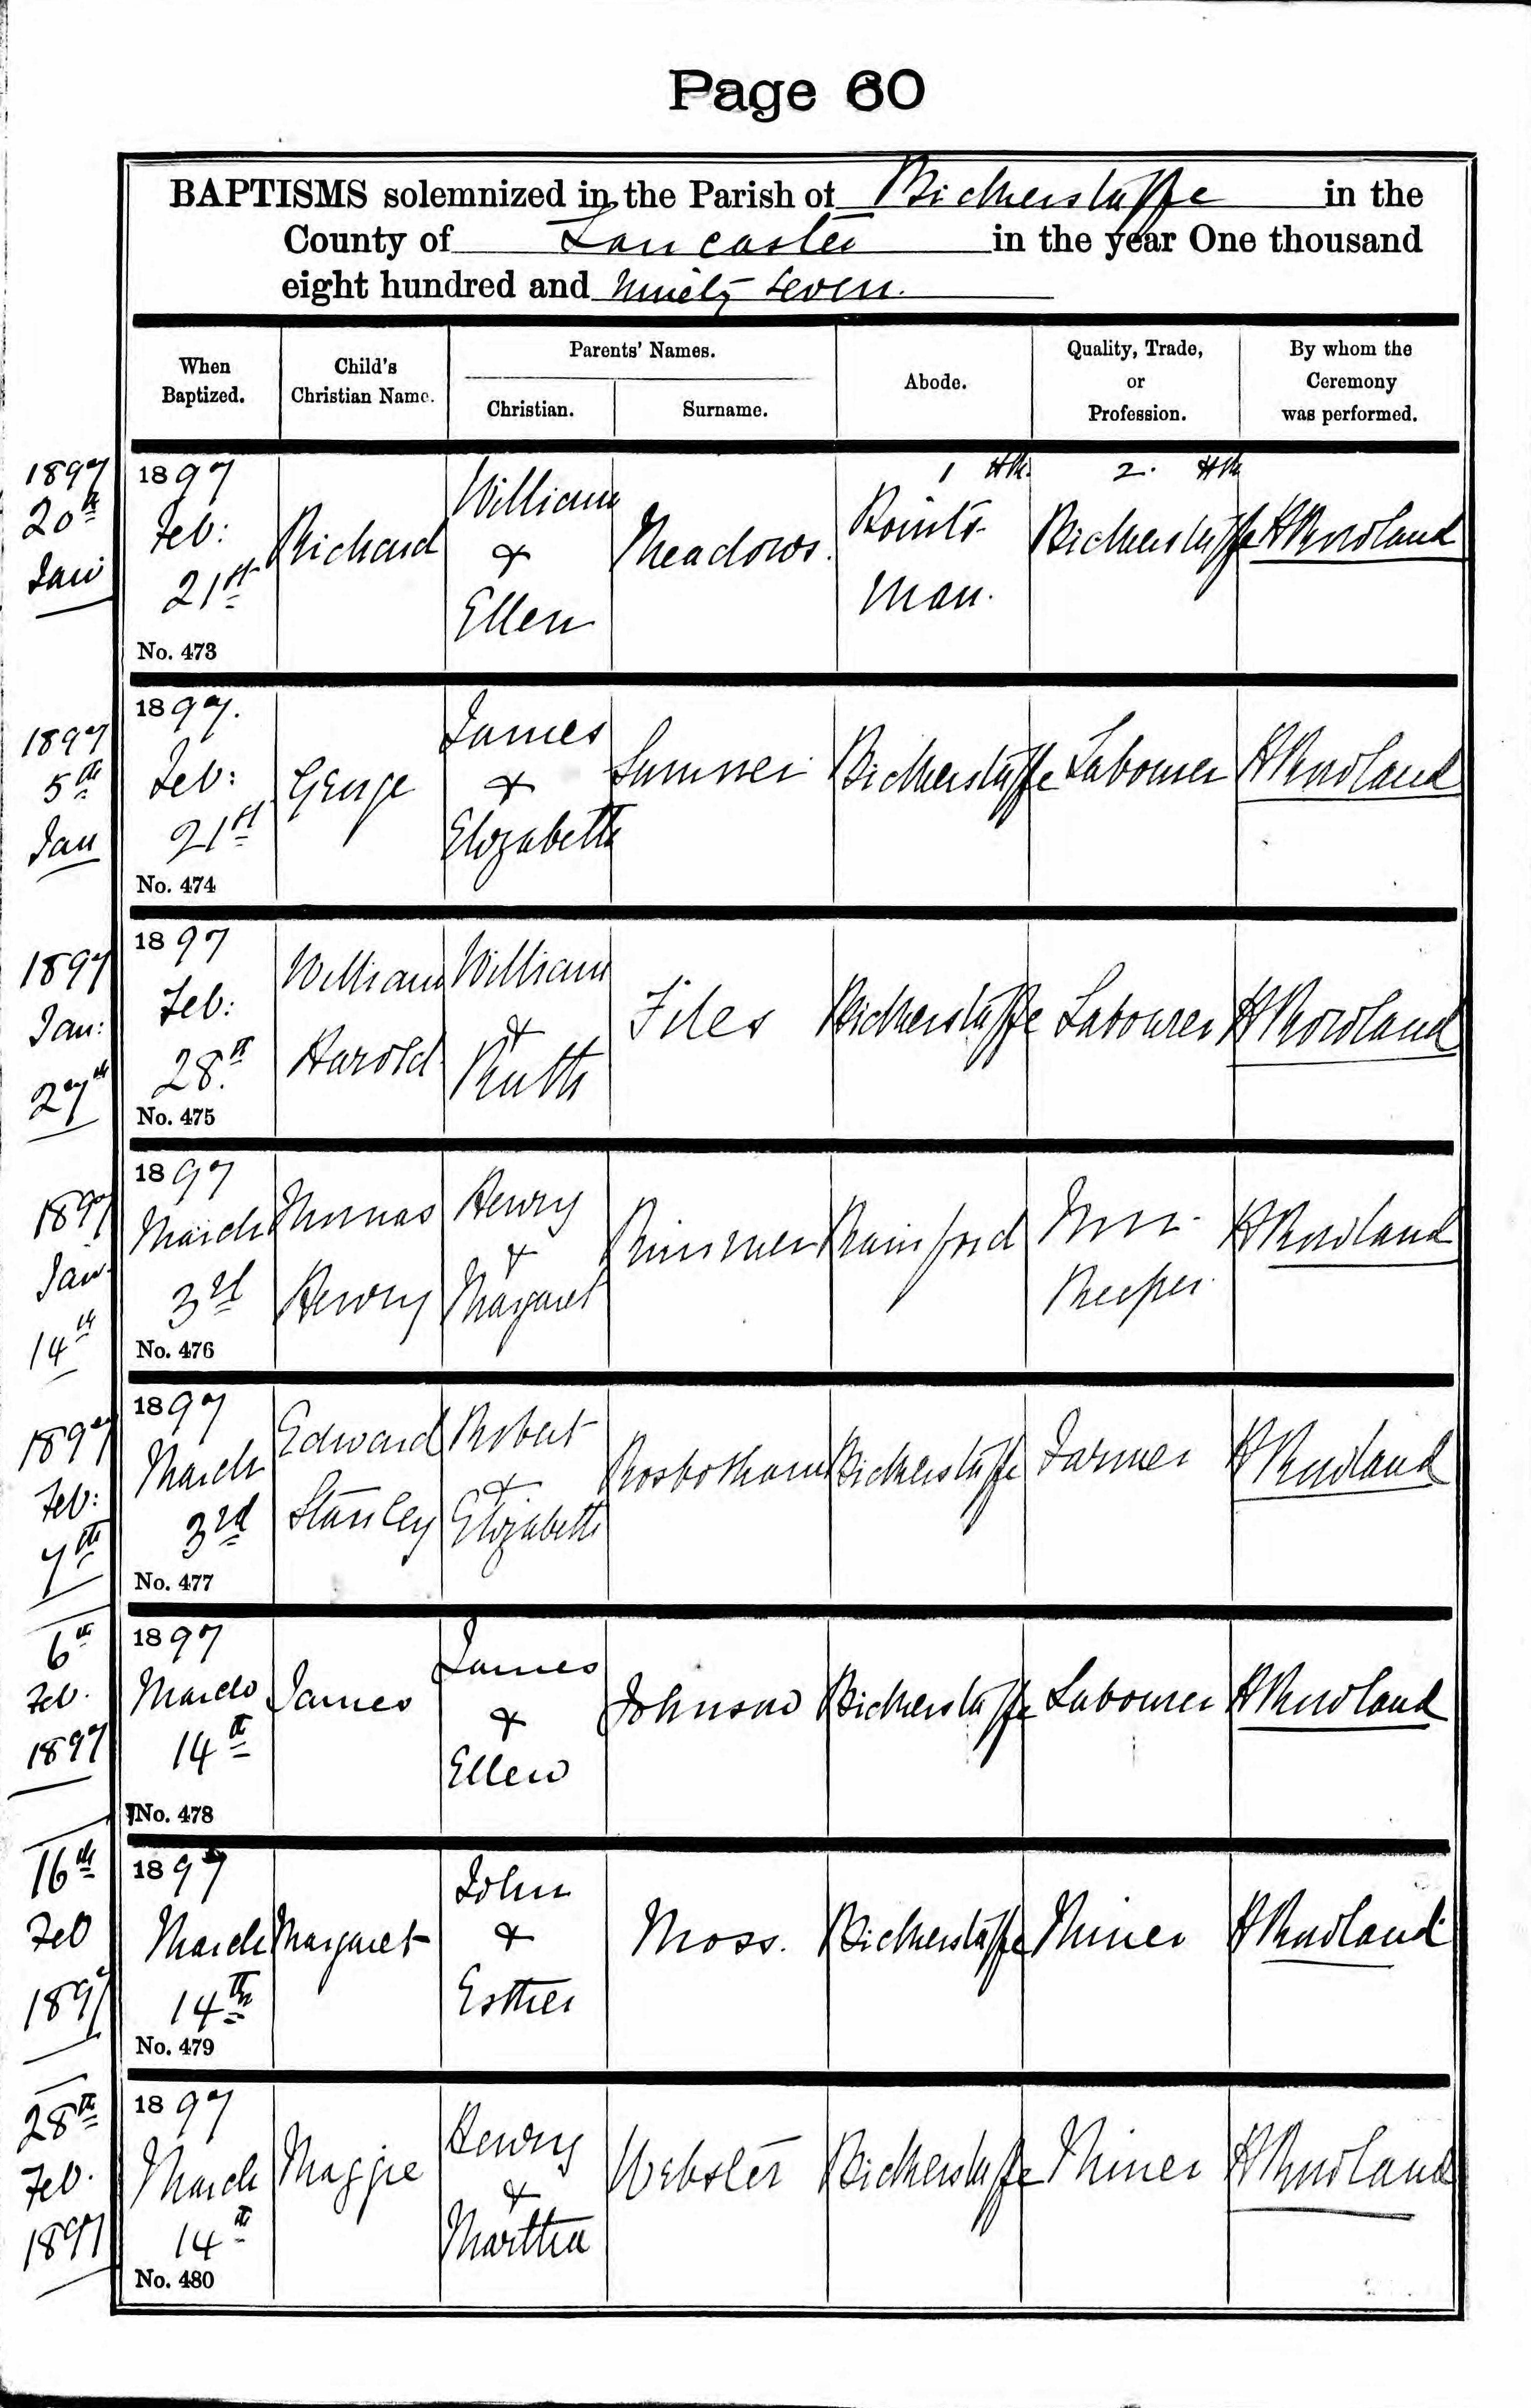 Page 60
BAPTISMS solemnized in the Parish of Bickerstaffe in the
County of Lancaster in the year One thousand
eight hundred and ninety seven.
When Baptized.
Child's Christian Name.
Parents' Names.
Christian.
Surname.
Abode.
Quality, Trade, or Profession.
By whom the Ceremony was performed.
1897
20th
Jan
1897
Feb:
21st
No. 473
Richard
William
&
Ellen
Meadows.
1 HR.
Points-
man.
2. HR
Bickerstaffe
H Rowland
1897
5th
Jan
1897.
Feb:
21st
No. 474
George
James
&
Elizabeth
Sumner
Bickerstaffe
Labourer
H Rowland
1897
Jan:
27th
1897
Feb:
28th
No. 475
William
Harold
William
&
Ruth
Files
Bickerstaffe
Labourer
H Rowland
1897
Jan
14th
1897
March
3rd
No. 476
Thomas
Henry
Henry
&
Margaret
Rimmer
Rainford
Inn-
Keeper
H Rowland
1897
Feb:
7th
1897
March
3rd
No. 477
Edward
Stanley
Robert
&
Elizabeth
Rosbotham
Bickerstaffe
Farmer
H Rowland
6th
Feb.
1897
1897
March
14th
No. 478
James
James
&
Ellen
Johnson
Bickerstaffe
Labourer
H Rowland
16th
Feb
1897
1897
March
14th
No. 479
Margaret
John
&
Esther
Moss.
Bickerstaffe
Miner
H Rowland
28th
Feb.
1897
1897
March
14th
No. 480
Maggie
Henry
&
Martha
Webster
Bickerstaffe
Miner
H Rowland